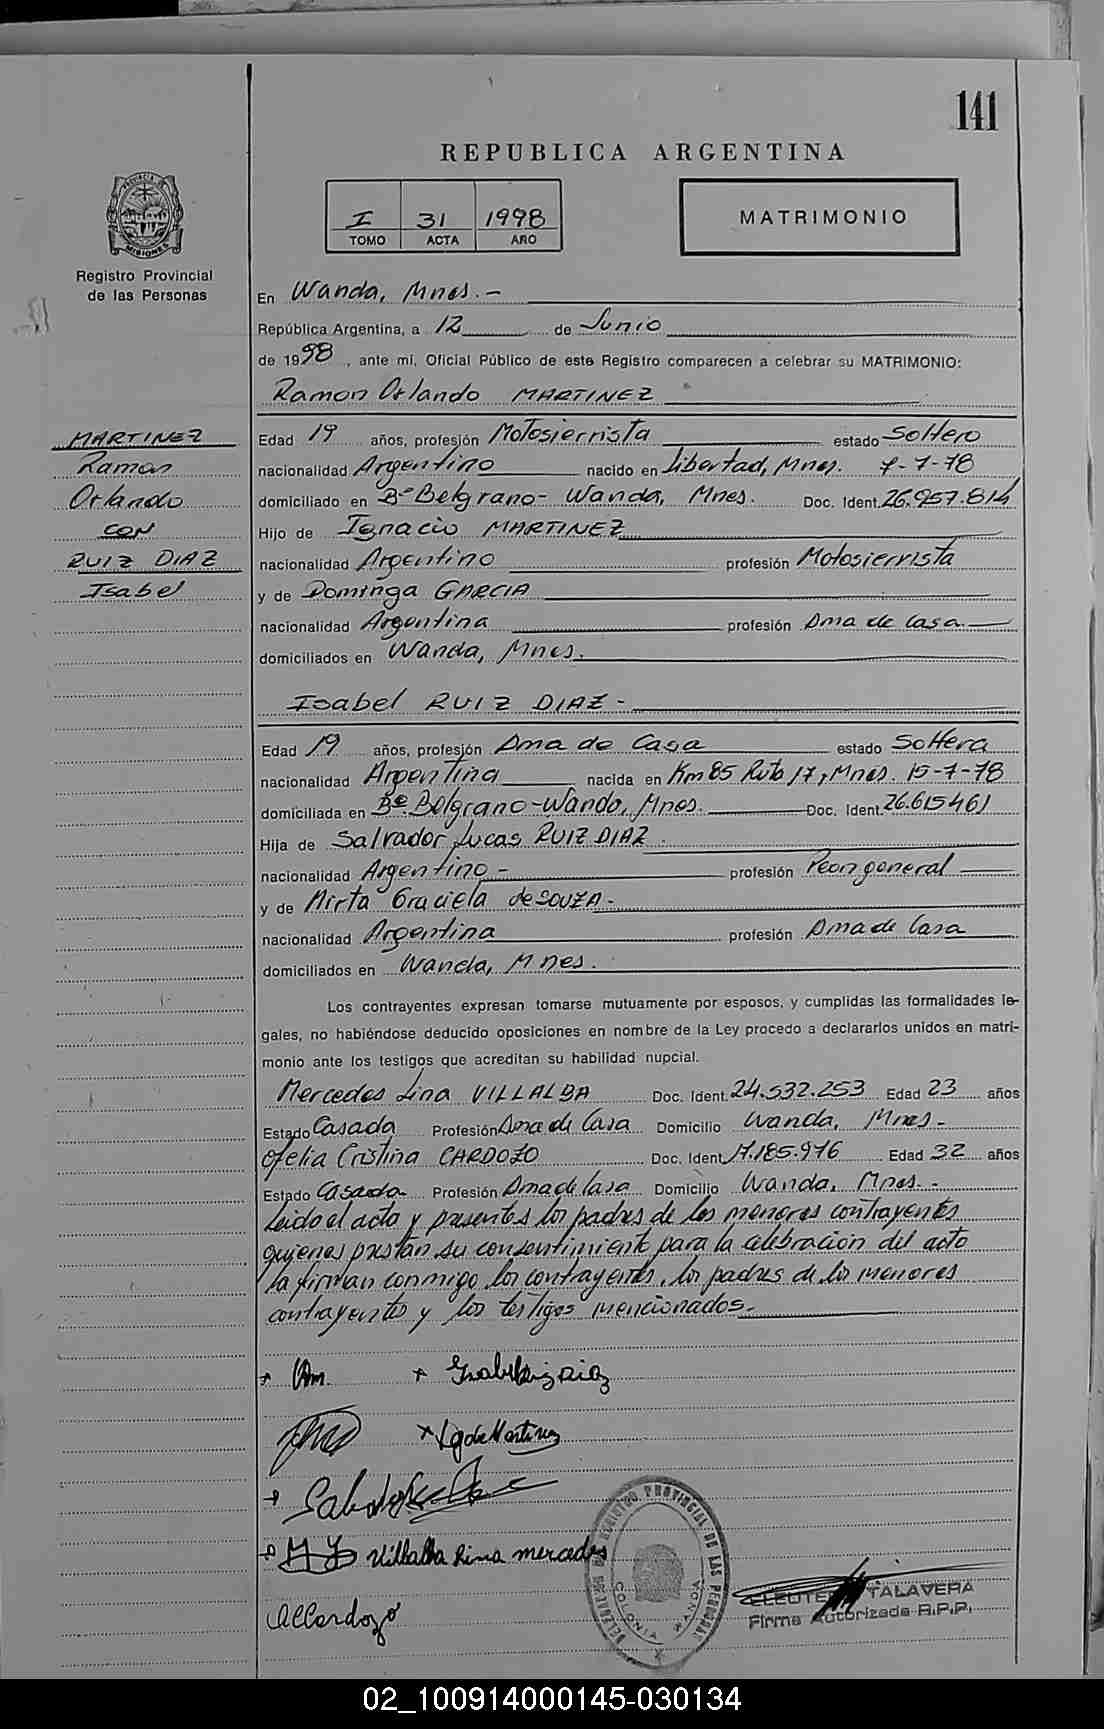 141
REPUBLICA ARGENTINA
PROVINCIA DE
MISIONES
Registro Provincial
de las Personas
I 31 1998
TOMO ACTA AÑO
MATRIMONIO
En Wanda, Mnes.-
República Argentina, a 12 de Junio
de 1998, ante mí, Oficial Público de este Registro comparecen a celebrar su MATRIMONIO:
Ramon Orlando MARTINEZ
MARTINEZ
Ramon
Orlando
CON
RUIZ DIAZ
Isabel
Edad 19 años, profesión Motosierrista estado Soltero
nacionalidad Argentino nacido en Libertad, Mnes. 7-7-78
domiciliado en Bº Belgrano- Wanda, Mnes. Doc. Ident. 26.957.814
Hijo de Ignacio MARTINEZ
nacionalidad Argentino profesión Motosierrista
y de Dominga GARCIA
nacionalidad Argentina profesión Ama de Casa
domiciliados en Wanda, Mnes.
Isabel RUIZ DIAZ -
Edad 19 años, profesión Ama de Casa estado Soltera
nacionalidad Argentina nacida en Km 85 Ruta 17, Mnes. 15-7-78
domiciliada en Bº Belgrano-Wanda, Mnes. Doc. Ident. 26.615461
Hija de Salvador Lucas RUIZ DIAZ
nacionalidad Argentino - profesión Peon general
y de Mirta Graciela de SOUZA-
nacionalidad Argentina profesión Ama de Casa
domiciliados en Wanda, Mnes.
Los contrayentes expresan tomarse mutuamente por esposos, y cumplidas las formalidades le-
gales, no habiéndose deducido oposiciones en nombre de la Ley procedo a declararlos unidos en matri-
monio ante los testigos que acreditan su habilidad nupcial.
Mercedes Lina VILLALBA Doc. Ident. 24.532.253 Edad 23 años
Estado Casada Profesión Ama de Casa Domicilio Wanda, Mnes.-
Ofelia Cristina CARDOZO Doc. Ident. 17.185.976 Edad 32 años
Estado Casada Profesión Ama de Casa Domicilio Wanda, Mnes.-
Leido el acto y presentes los padres de los menores contrayentes
quienes prestan su consentimiento para la celebración del acto
la firman conmigo los contrayentes, los padres de los menores
contrayentes y los testigos mencionados.-
Isabel Ruiz Diaz
de Martinez
Villalba Lina mercedes
Cardozo
REGISTRO PROVINCIAL DE LAS PERSONAS
COLONIA WANDA
TALAVERA
Firma Autorizada R.P.P.
02_100914000145-030134